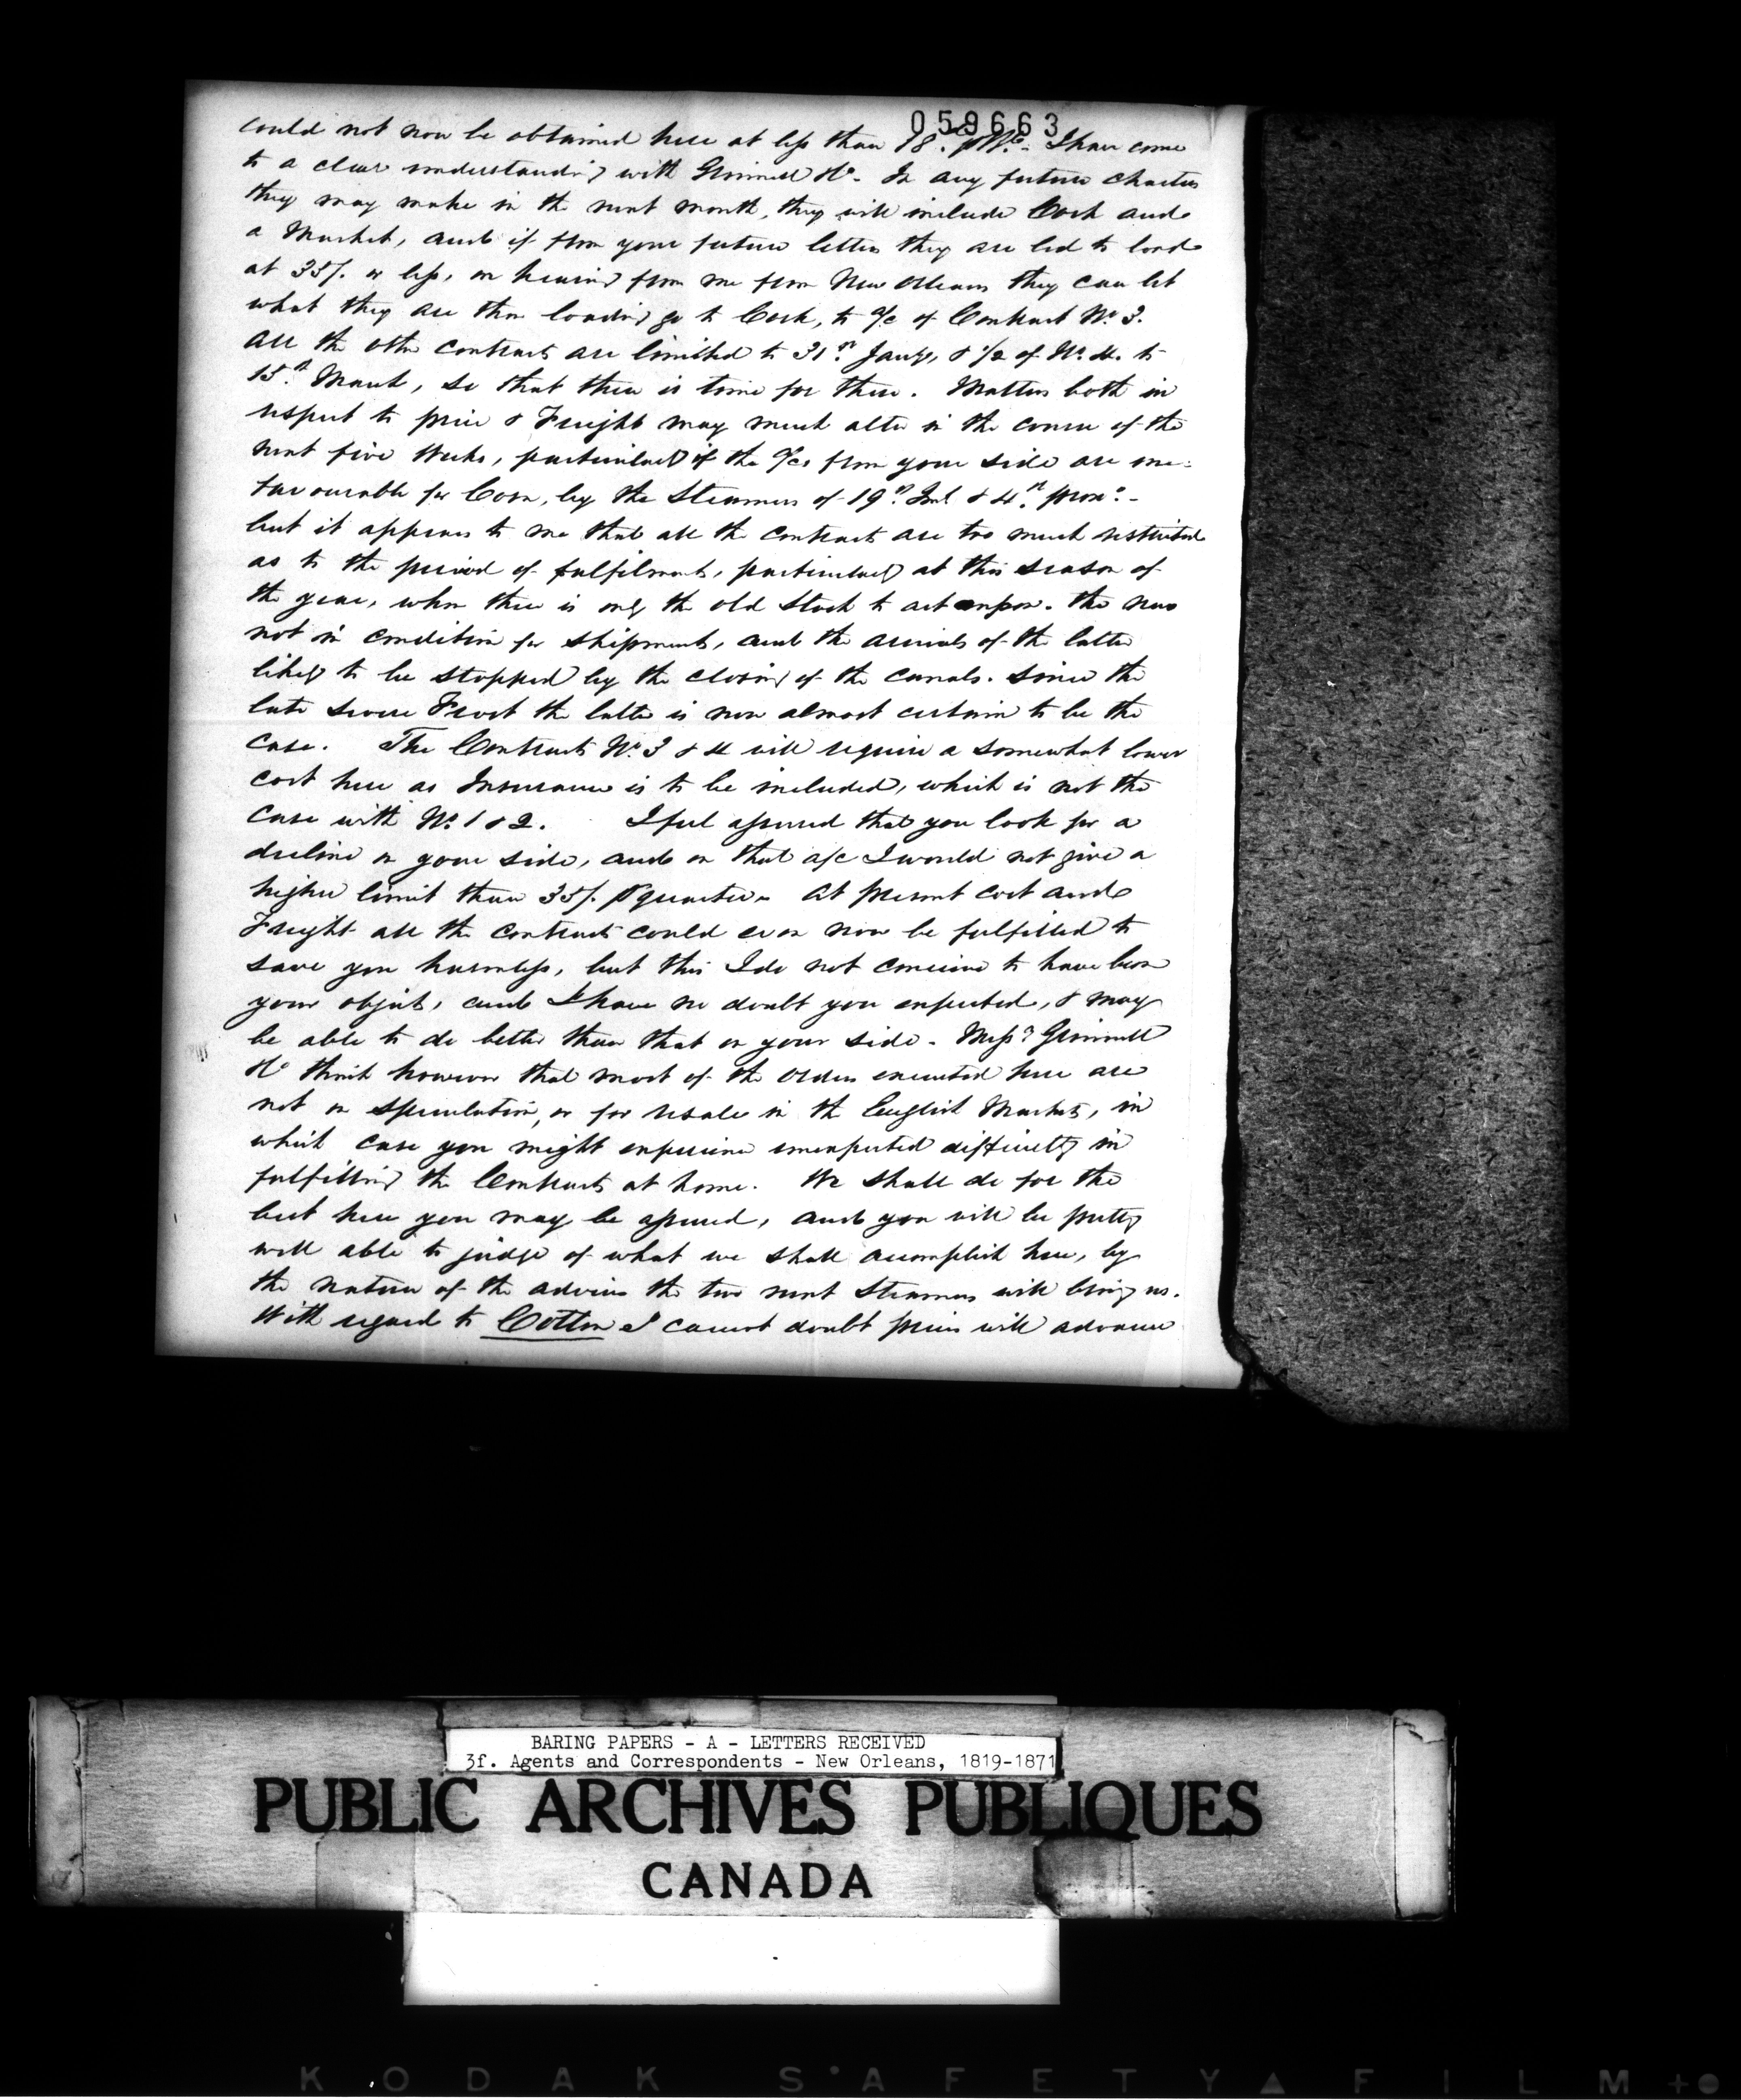 059663
could not now be obtained here at less than 18.d p Bl.- I have come
to a clear understanding with Grinnell & Co. In any future charters
they may make in the next month, they will include Cork and
a Market, and if from your future letters they are led to load
at 35/. or less, on hearing from me from New Orleans they can let
what they are then loading go to Cork, to a/c of Contract No. 3.
All the other contracts are limited to 31.st Jany, & 1/2 of No. 4. to
15.th March, so that there is time for these. Matters both in
respect to price & Freight may much alter in the course of the
next five weeks, particularly if the a/cs from your side are un:
favourable for Corn, by the Steamers of 19.th Inst & 4.th prox.o-
but it appears to me that all the contracts are too much restricted
as to the period of fulfilment, particularly at this season of
the year, when there is only the old Stock to act upon. the new
not in condition for shipment, and the arrivals of the latter
likely to be stopped by the closing of the canals. Since the
late severe Frost the latter is now almost certain to be the
case. The Contracts No. 3 & 4 will require a somewhat lower
cost here as Insurance is to be included, which is not the
case with No. 1 & 2. I feel assured that you look for a
decline on your side, and on that a/c I would not give a
higher limit than 35/. p quarter. At present cost and
Freight all the contracts could even now be fulfilled to
save you harmless, but this I do not conceive to have been
your object, and I have no doubt you expected, & may
be able to do better than that on your side. Messrs Grinnell
& Co think however that most of the orders executed here are
not on speculation, or for resale in the English Markets, in
which case you might experience unexpected difficulty in
fulfilling the Contracts at home. We shall do for the
best here you may be assured, and you will be pretty
well able to judge of what we shall accomplish here, by
the nature of the advices the two next Steamers will bring us.
With regard to Cotton I cannot doubt prices will advance
BARING PAPERS - A - LETTERS RECEIVED
3f. Agents and Correspondents - New Orleans, 1819-1871
PUBLIC ARCHIVES PUBLIQUES
CANADA
KODAK SAFETY FILM